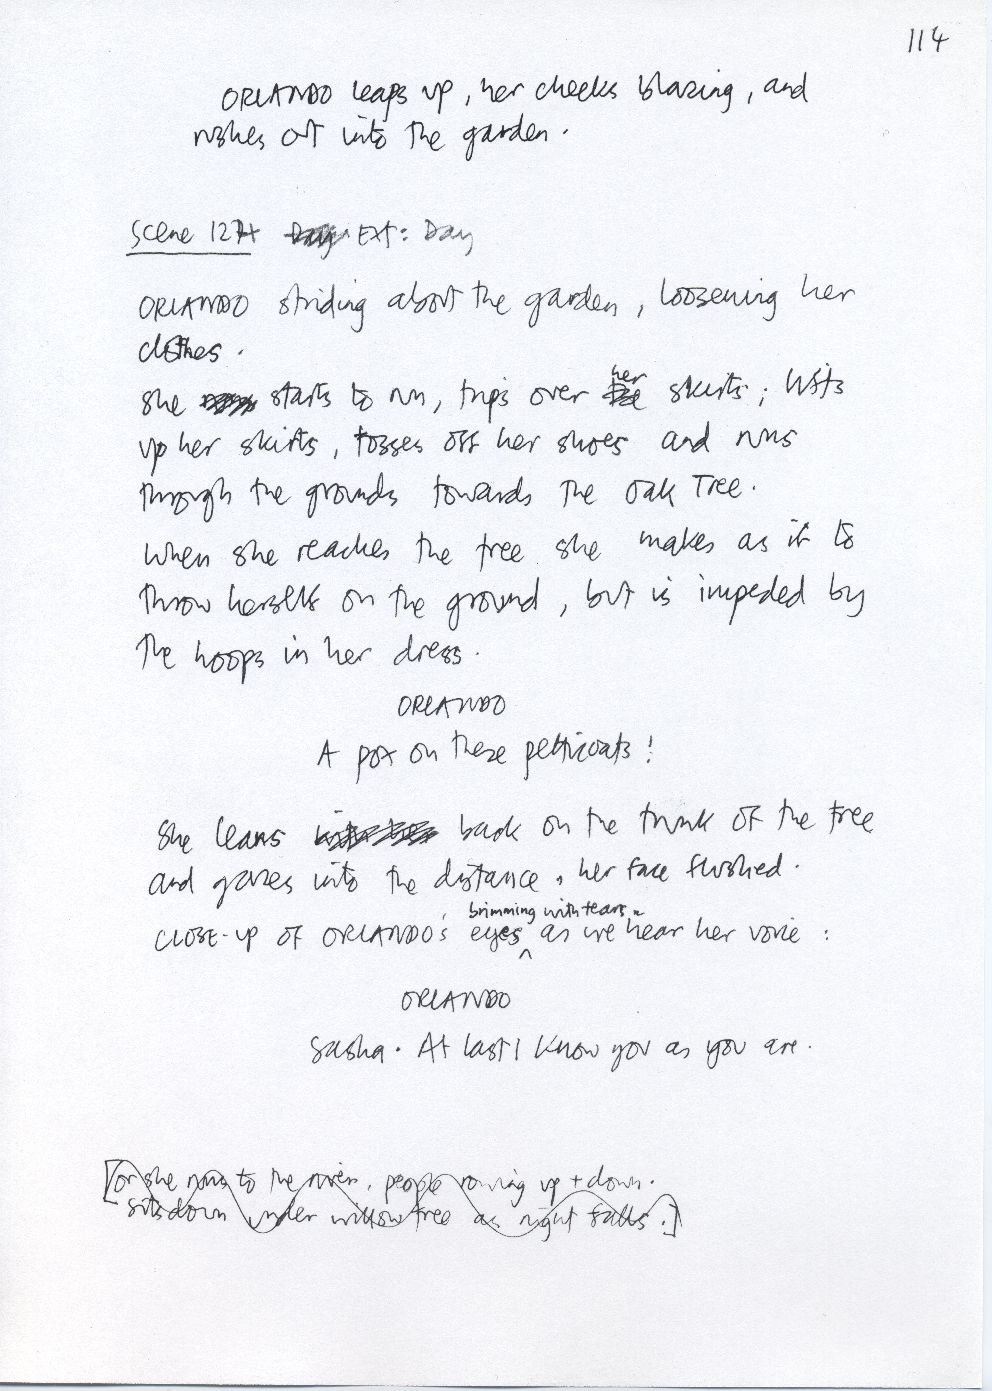 114
ORLANDO leaps up, her cheeks blazing, and
rushes out into the garden.
Scene 127 Day Ext: Day
ORLANDO striding about the garden, loosening her
clothes.
she starts to run, trips over her skirts; lifts
up her skirts, tosses off her shoes and runs
through the grounds towards the Oak Tree.
When she reaches the tree she makes as if to
throw herself on the ground, but is impeded by
the hoops in her dress.
ORLANDO
A pox on these petticoats!
She leans back on the trunk of the tree
and gazes into the distance, her face flushed.
brimming with tears
CLOSE-UP OF ORLANDO's eyes, as we hear her voice:
ORLANDO
Sasha. At last I know you as you are.
[or she runs to the river. people rowing up + down.
sits down under willow tree as night falls.]